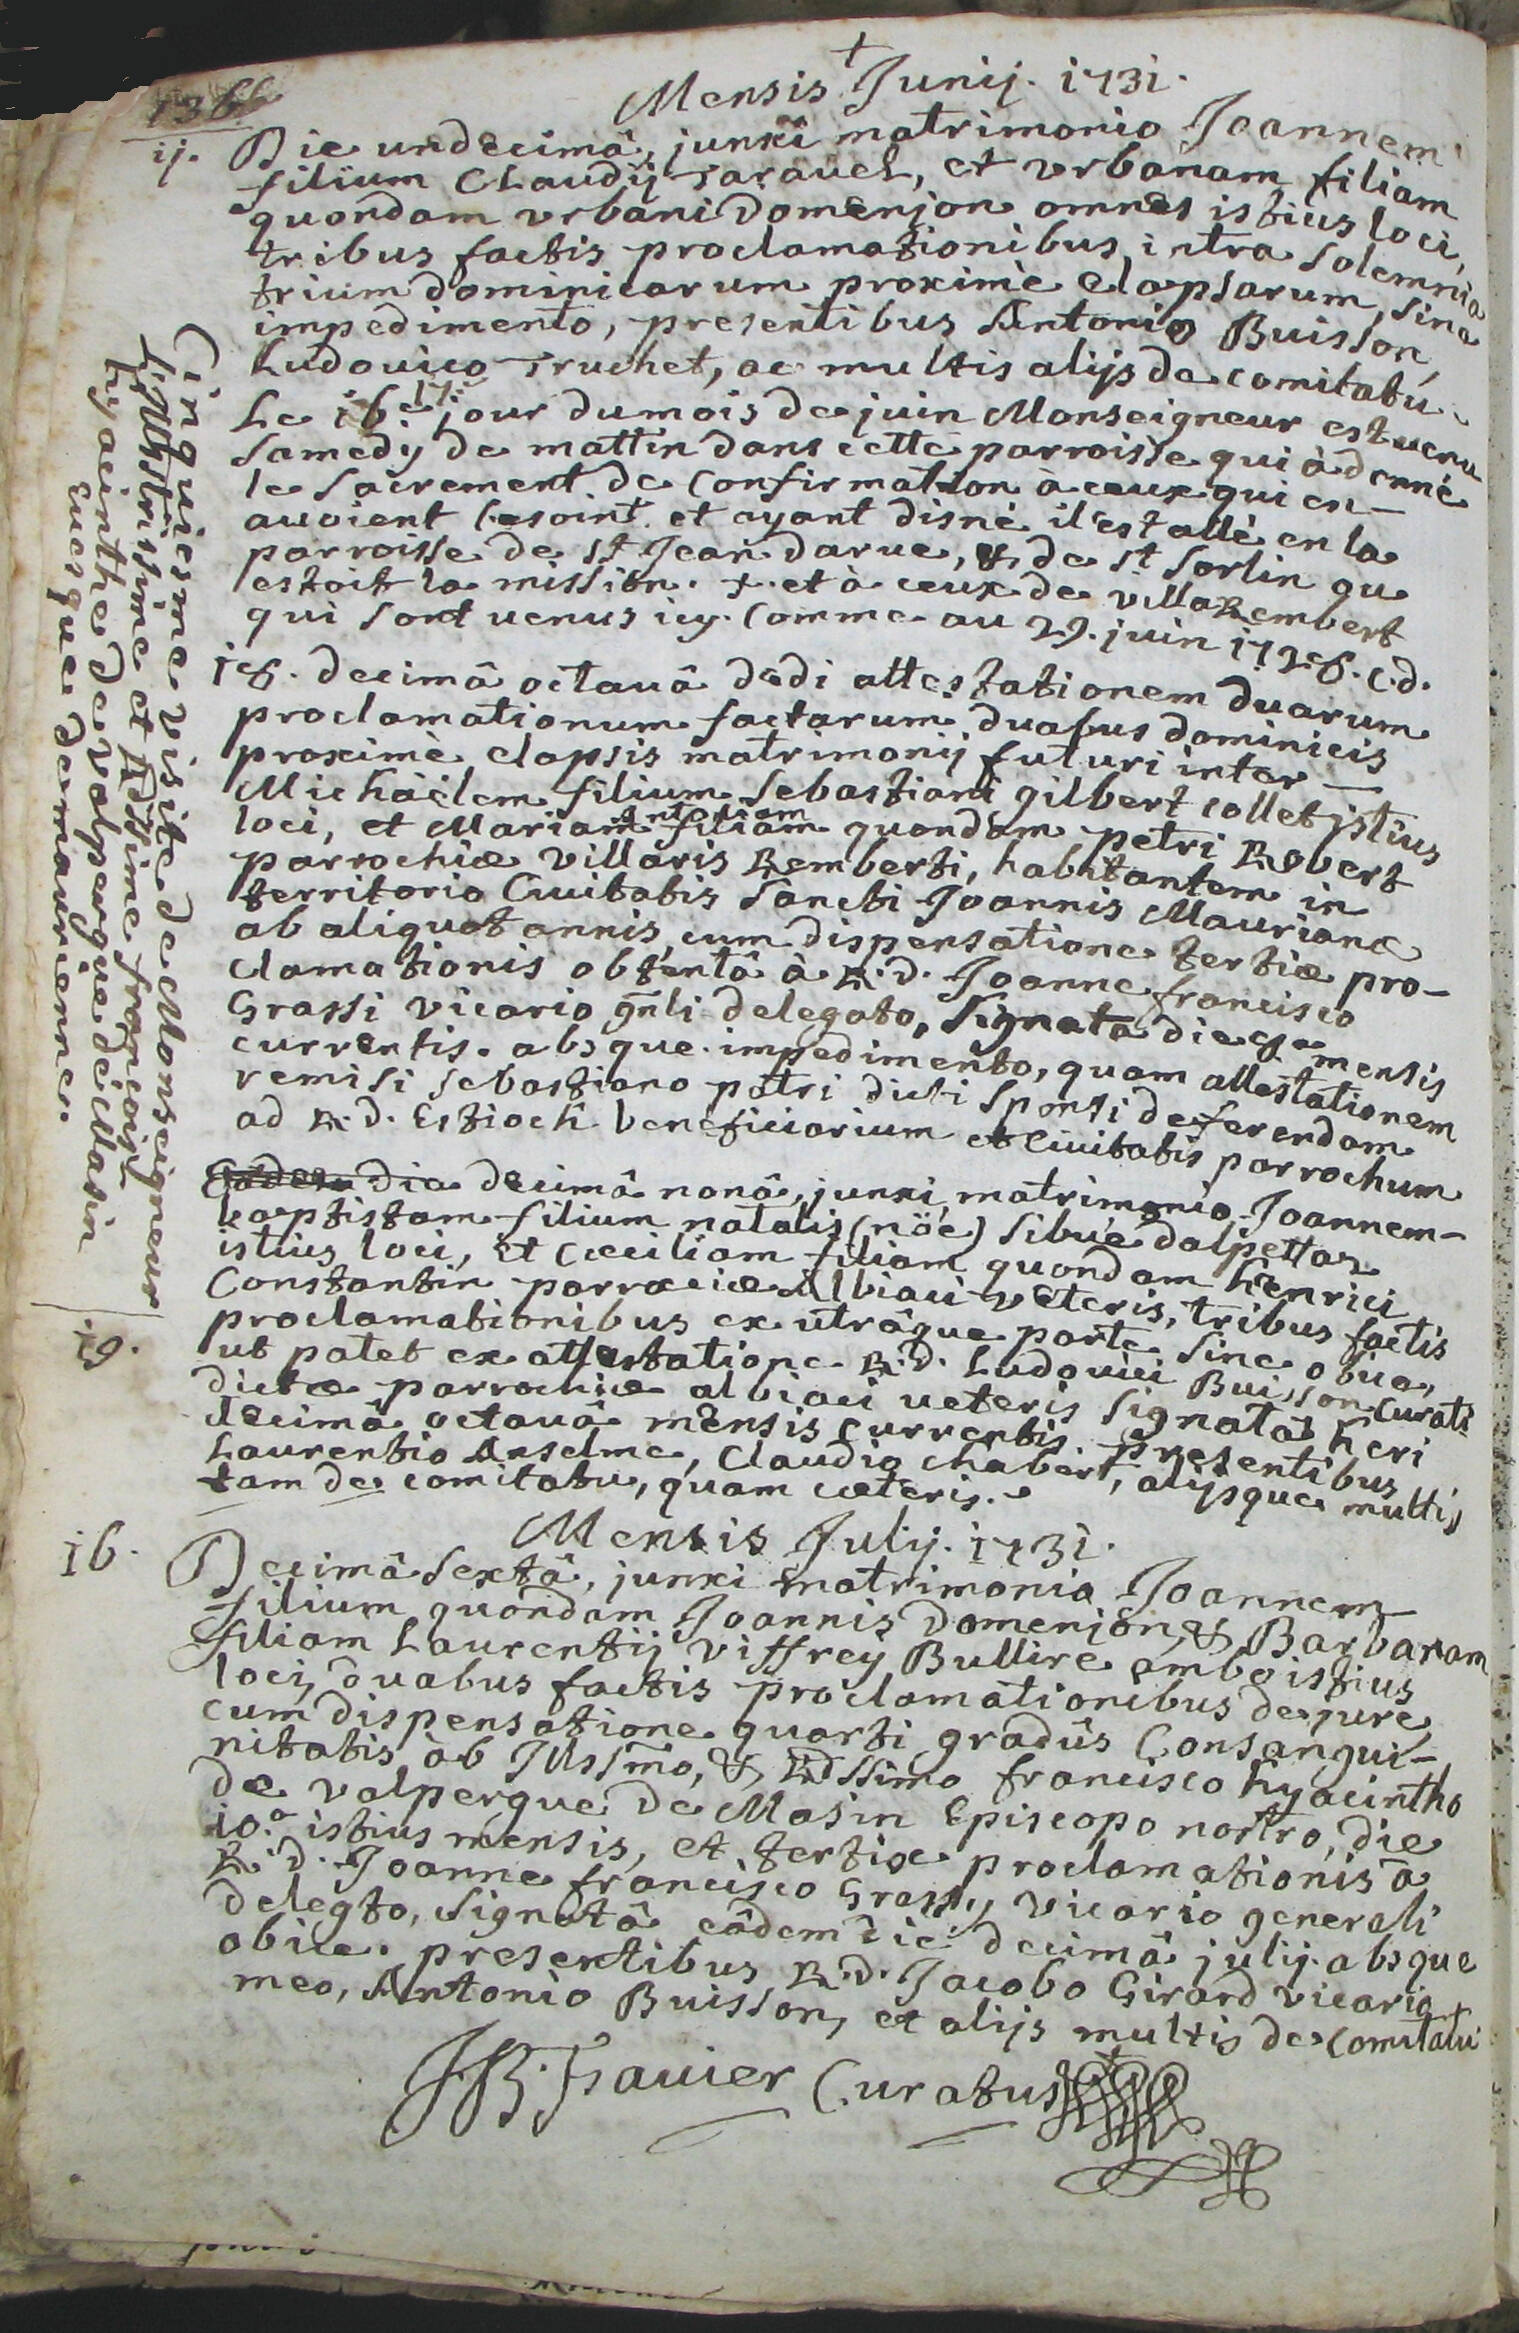 +
136
Mensis Junij. 1731.
ij. Die undecimâ, junxi matrimonio Joannem
filium Claudij Taravel, et Urbanam filiam
quondam Urbani Domenjon omnes istius loci,
tribus factis proclamationibus intra solemnia
trium dominicarum proximè elapsarum, sine
impedimento, presentibus Antonio Buisson,
Ludovico Truchet, ac multis alijs de comitatu.
Le 16.e jour du mois de juin Monseigneur est venu
samedy de mattin dans cette parroisse qui à donné
le sacrement de Confirmation à ceux qui en-
avoient besoint. et ayant disné il est allé en la
parroisse de St Jean darve, & de St Sorlin ou
estoit la mission. +. et à ceux de villaRembert
qui sont venus icy. Comme au 29. juin 1728. c.d.
18. decimâ octavâ dedi attestationem duarum
proclamationum factarum duabus dominicis
proximè elapsis matrimonij futuri inter -
Michäelem filium Sebastiani gilbert collet istius
loci, et Mariam Antoniam filiam quondam petri Rovert
parrochiæ villaris Remberti, habitantem in
territorio Civitatis Sancti Joannis Maurianæ
ab aliquot annis, cum dispensatione tertiæ pro-
clamationis obtentâ à R.d. Joanne francisco
Grassi vicario gnli delegato, signata die 9a mensis
currentis. absque impedimento, quam attestationem
remisi sebastiano patri dicti sponsi deferendam
ad R.d. Estioch beneficiarium et Civitatis parrochum
Eadem die decimâ nonâ, junxi matrimonio Joannem-
baptistam filium natalis (nöé) Sibué dalpettaz
istius loci, et Cæciliam filiam quondam henrici
Constantin parrociæ Albiaci veteris, tribus factis
proclamationibus ex utrâque parte sine obice,
ut patet ex attestatione R.d. Ludovici Buisson Curati
dictæ parrochiæ albiaci veteris signatâ heri
decimâ octavâ mensis currentis. presentibus
Laurentio Anselme, Claudio Chabert, alijsque multis
tam de comitatu, quam cæteris.
Mensis Julij. 1731.
16. Decimâ sextâ, junxi matrimonio Joannem
filium quondam Joannis Domenjon, & Barbaram
filiam Laurentij Viffrey Bullire ambo istius
loci, duabus factis proclamationibus de jure,
cum dispensatione quarti gradûs Consangui-
nitatis ab Jllssmo, & Rdssimo francisco hyacintho
de valpergue de Masin Episcopo nostro, die
10.a istius mensis, et tertiæ proclamationis à
R.d. Joanne francisco Grassy vicario generali
delegto, signatâ eâdem die decimâ julij. absque
obice. presentibus R.d. Jacobo Girard vicario
meo, Antonio Buisson, et alijs multis de Comitatu
JB. Travier Curatus
Cinquiesme visite de Monseigneur
Jllustrissime et Rdssime françois
hyacinthe de valpergue de Masin
Euesque de maurienne.
19.